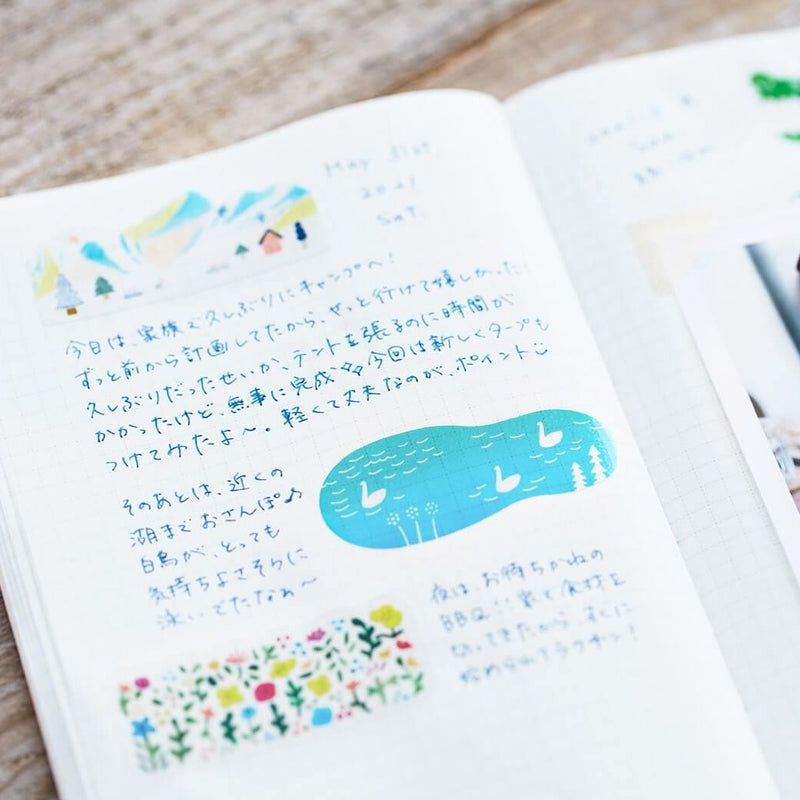 May 31st.
2021
Sat.
今日は、家族で久しぶりにキャンプへ!
ずっと前から計画してたから、やっと行けて嬉しかった!
久しぶりだったせいか、テントを張るのに時間が
かかったけど、無事に完成✨今回は新しくタープも
つけてみたよ〜。軽くて丈夫なのが、ポイント☺
そのあとは、近くの
湖までおさんぽ♪
白鳥が、とっても
気持ちよさそうに
泳いでたなぁ〜
夜は、お待ちかねの
BBQ!! 家で食材を
切ってきたから、すぐに
始められてラクチン!